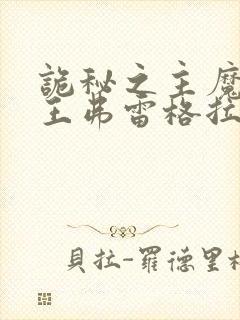 詭秘之主魔
王弗雷格拉
貝拉-羅德里格